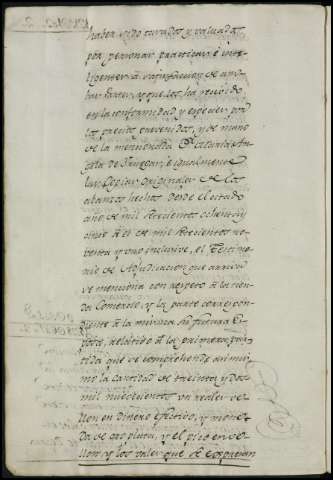 haber sido tasados y valuados
por personas practicas, é inte-
ligentes à satisfaccion de am-
bas partes, y que los ha recivido
en la conformidad y especies, por
los precios prevenidos, y de mano
de la mencionada D.ª Catarina An-
gela de igualmente
las Copias originales de los
abanzos hechos desde el citado
año de mil setecientos ochenta y
cinco à el de mil setecientos no-
benta y uno inclusive, el Testimo-
nio de Adjudicacion que arriva se
menciona con respeto à la tien-
da Comercio, y la parte correspon-
diente à la misma
relativo à la primera par-
tida que se comprehende asimis-
mo la cantidad de treinta y dos
mil nuevecientos un reales ve-
llon en dinero efectivo, y mone-
da de oro plata, y el pico en ve-
llon, y los vales que se expresan